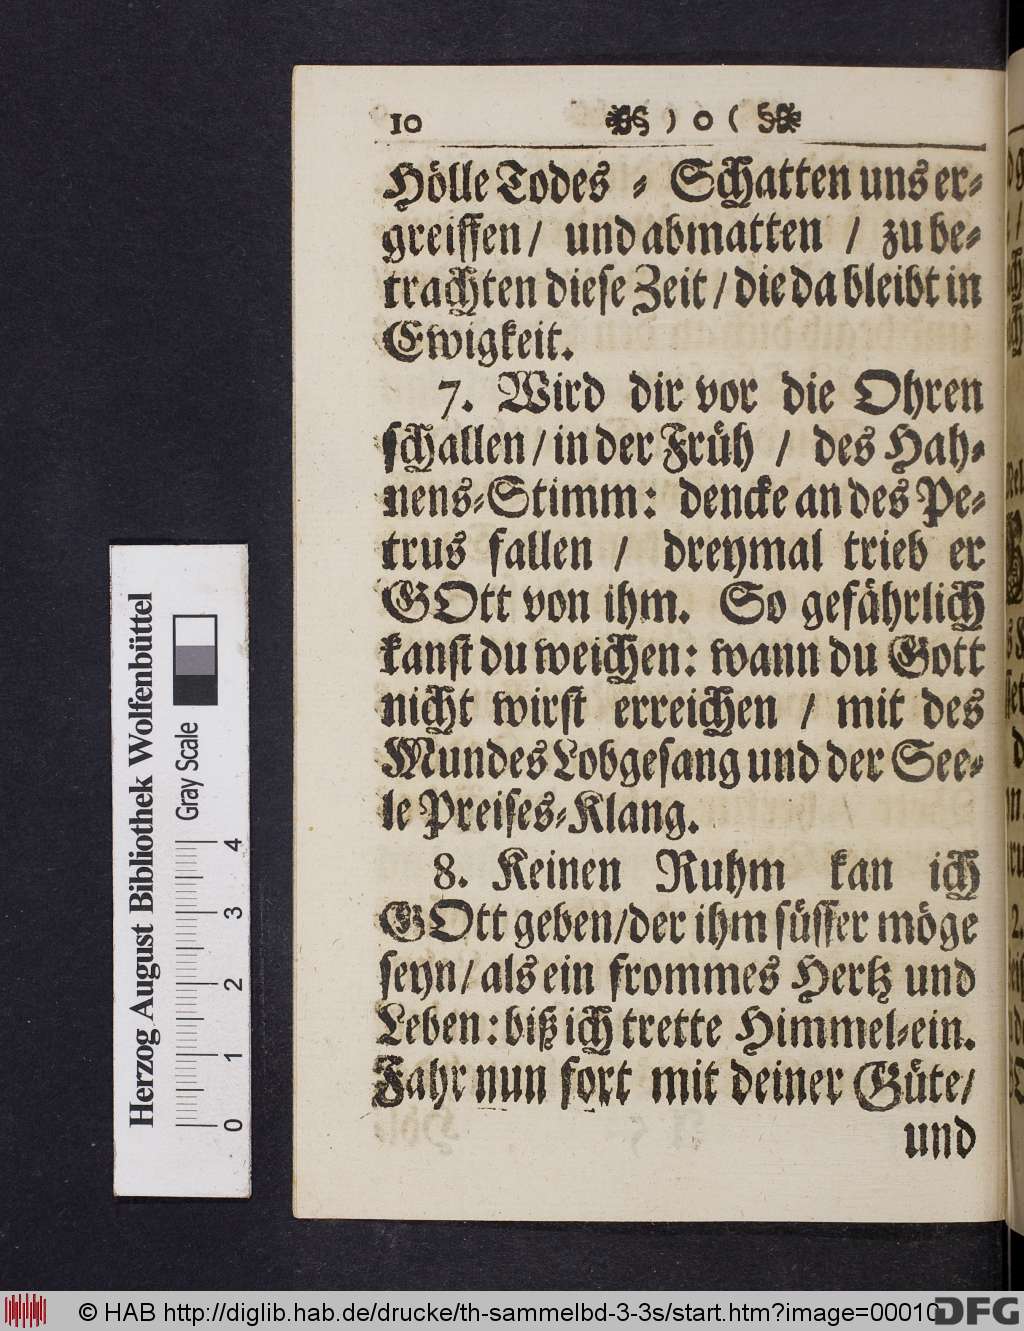 10 ) o (
Hölle Todes - Schatten uns er-
greiffen/ und abmatten / zu be-
trachten diese Zeit / die da bleibt in
Ewigkeit.
7. Wird dir vor die Ohren
schallen / in der Früh / des Hah-
nens-Stimm: dencke an des Pe-
trus fallen / dreymal trieb er
GOtt von ihm. So gefährlich
kanst du weichen: wann du Gott
nicht wirst erreichen / mit des
Mundes Lobgesang und der See-
le Preises-Klang.
8. Keinen Ruhm kan ich
GOtt geben/der ihm süsser möge
seyn/ als ein frommes Hertz und
Leben: biß ich trette Himmel-ein.
Fahr nun fort mit deiner Güte/
und
Herzog August Bibliothek Wolfenbüttel
Gray Scale
0 1 2 3 4
© HAB http://diglib.hab.de/drucke/th-sammelbd-3-3s/start.htm?image=00010
DFG